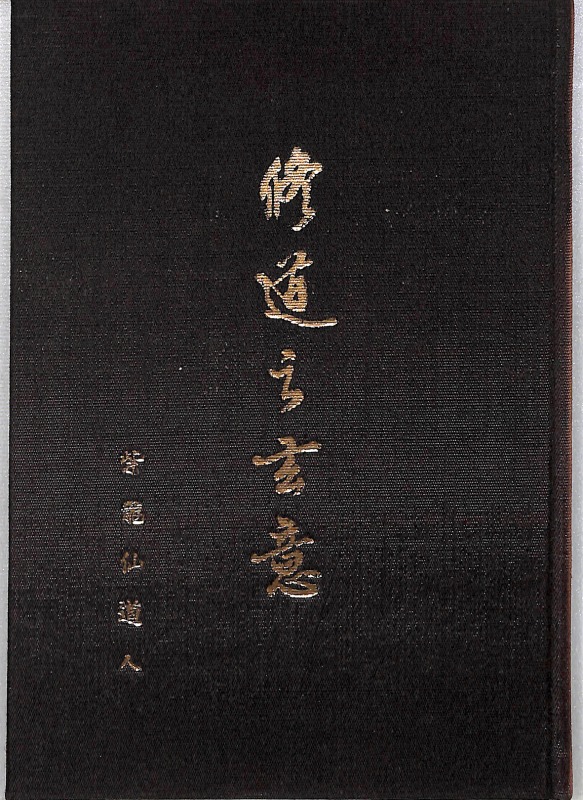 修道之玄意
仙道人